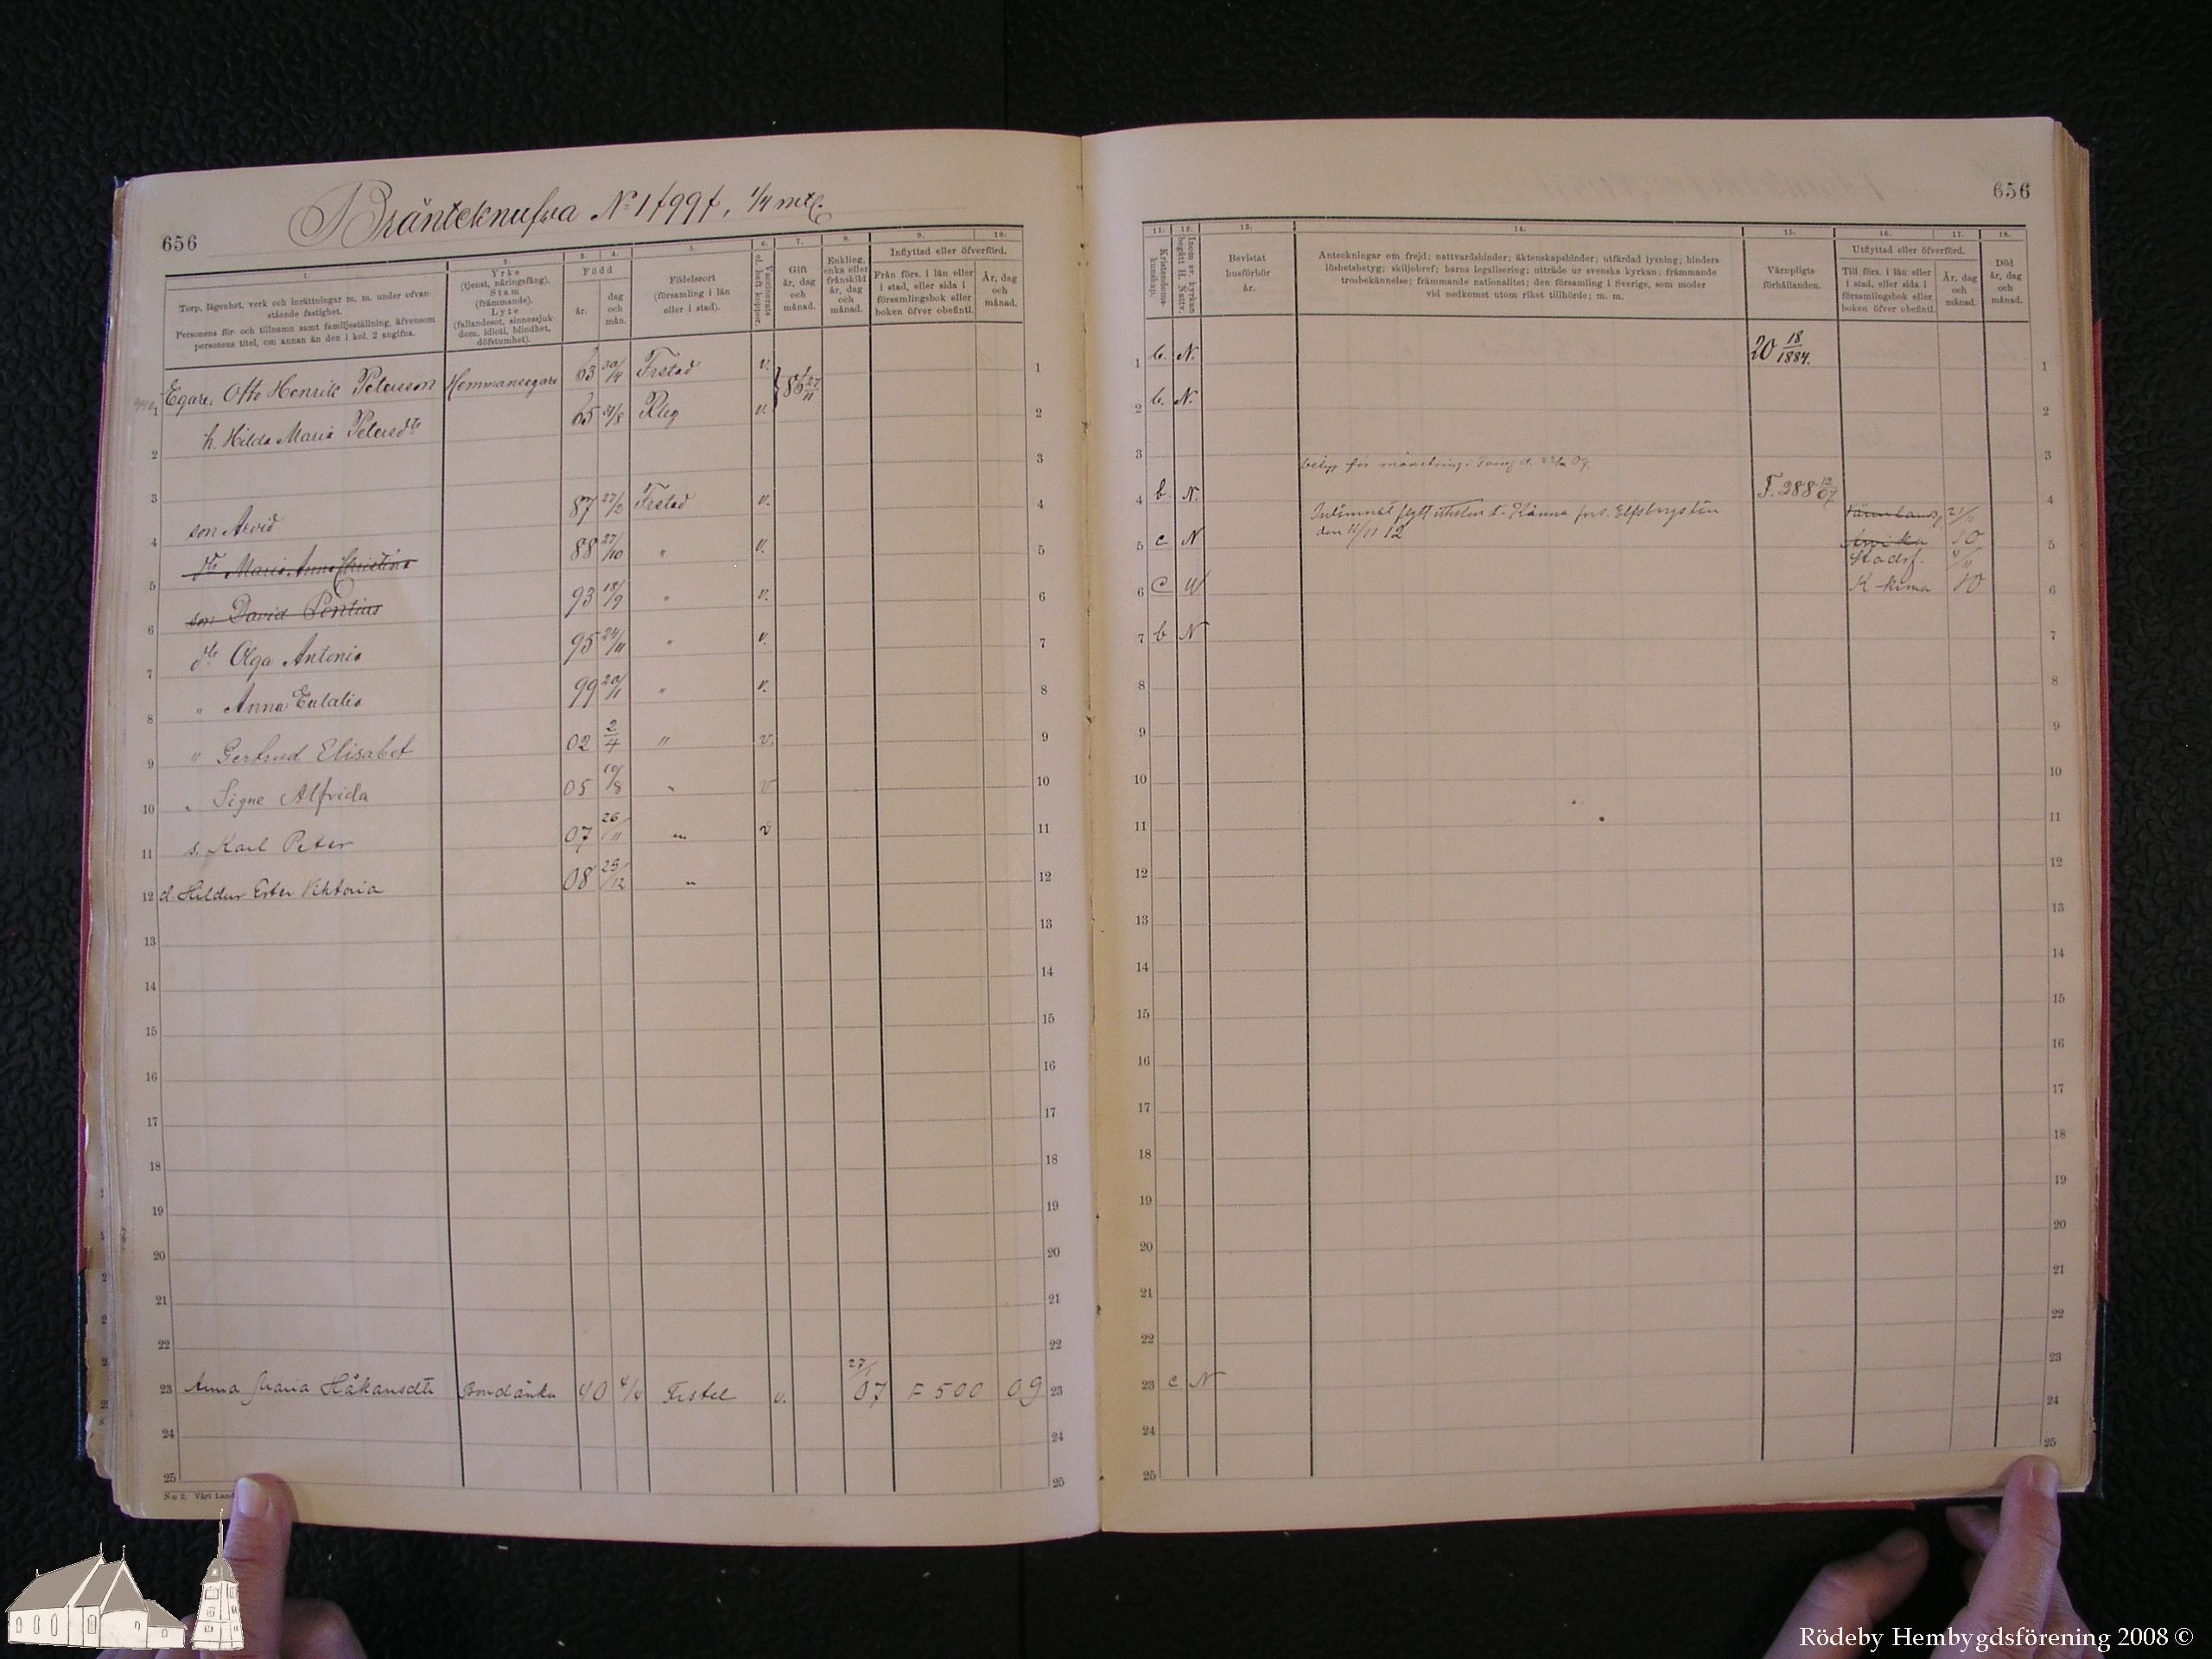 656
Bränteknufva No 1 f 99 f, 1/4 mtl.
1. 2. 3. 4. 5. 6. 7. 8. 9. 10.
Torp, lägenhet, verk och inrättningar m. m. under ofvanstående fastighet.
Personens för- och tillnamn samt familjeställning, äfvensom personens titel, om annan än den i kol. 2 angifna.
Yrke
(tjenst, näringsfång).
Stam
(främmande).
Lyte
(fallandesot, sinnessjukdom, idioti, blindhet, döfstumhet).
Född
år.
dag och mån.
Födelseort
(församling i län eller i stad).
Vaccinerats el. haft koppor.
Gift
år, dag och månad.
Enkling, enka eller frånskild år, dag och månad.
Inflyttad eller öfverförd.
Från förs. i län eller i stad, eller sida i församlingsbok eller boken öfver obefintl.
År, dag och månad.
1 Egare: Otto Henrik Petersson Hemmansegare 63 30/4 Frstad v. 86 27/11
2 h. Hilda Maria Petersdtr 65 31/8 Rby v.
3
4 son Arvid 87 27/2 Frstad v.
5 dtr Maria Anna Christina 88 27/10 " v.
6 son David Pontius 93 18/9 " v.
7 dtr Olga Antonia 95 24/11 " v.
8 " Anna Eulalia 99 20/1 " v.
9 " Gertrud Elisabet 02 2/4 " v.
10 " Signe Alfrida 05 10/8 " v
11 s. Karl Peter 07 26/11 " v
12 d Hildur Ester Viktoria 08 25/12 "
13
14
15
16
17
18
19
20
21
22
23 Anna Maria Håkansdtr Bondänka 40 4/4 Frstad v. 27/1 07 F 500 09
24
25
No 2. Vårt Land
656
11. 12. 13. 14. 15. 16. 17. 18.
Kristendomskunskap.
Inom sv. kyrkan begått H. Nattv.
Bevistat husförhör år.
Anteckningar om frejd; nattvardshinder; äktenskapshinder; utfärdad lysning; hinderslöshetsbetyg; skiljobref; barns legalisering; utträde ur svenska kyrkan; främmande trosbekännelse; främmande nationalitet; den församling i Sverige, som moder vid nedkomst utom riket tillhörde; m. m.
Värnpligtsförhållanden.
Utflyttad eller öfverförd.
Till förs. i län eller i stad, eller sida i församlingsbok eller boken öfver obefintl.
År, dag och månad.
Död
år, dag och månad.
1 b. N. 20 18/1884.
2 b. N.
3
betyg för mönstring
4 b. N. F. 288 12/07
5 c N den 11/11 12 Arvika 10
Stadsf.
6 c N K-kima 10
7 b N
8
9
10
11
12
13
14
15
16
17
18
19
20
21
22
23 c N
24
25
Rödeby Hembygdsförening 2008 ©